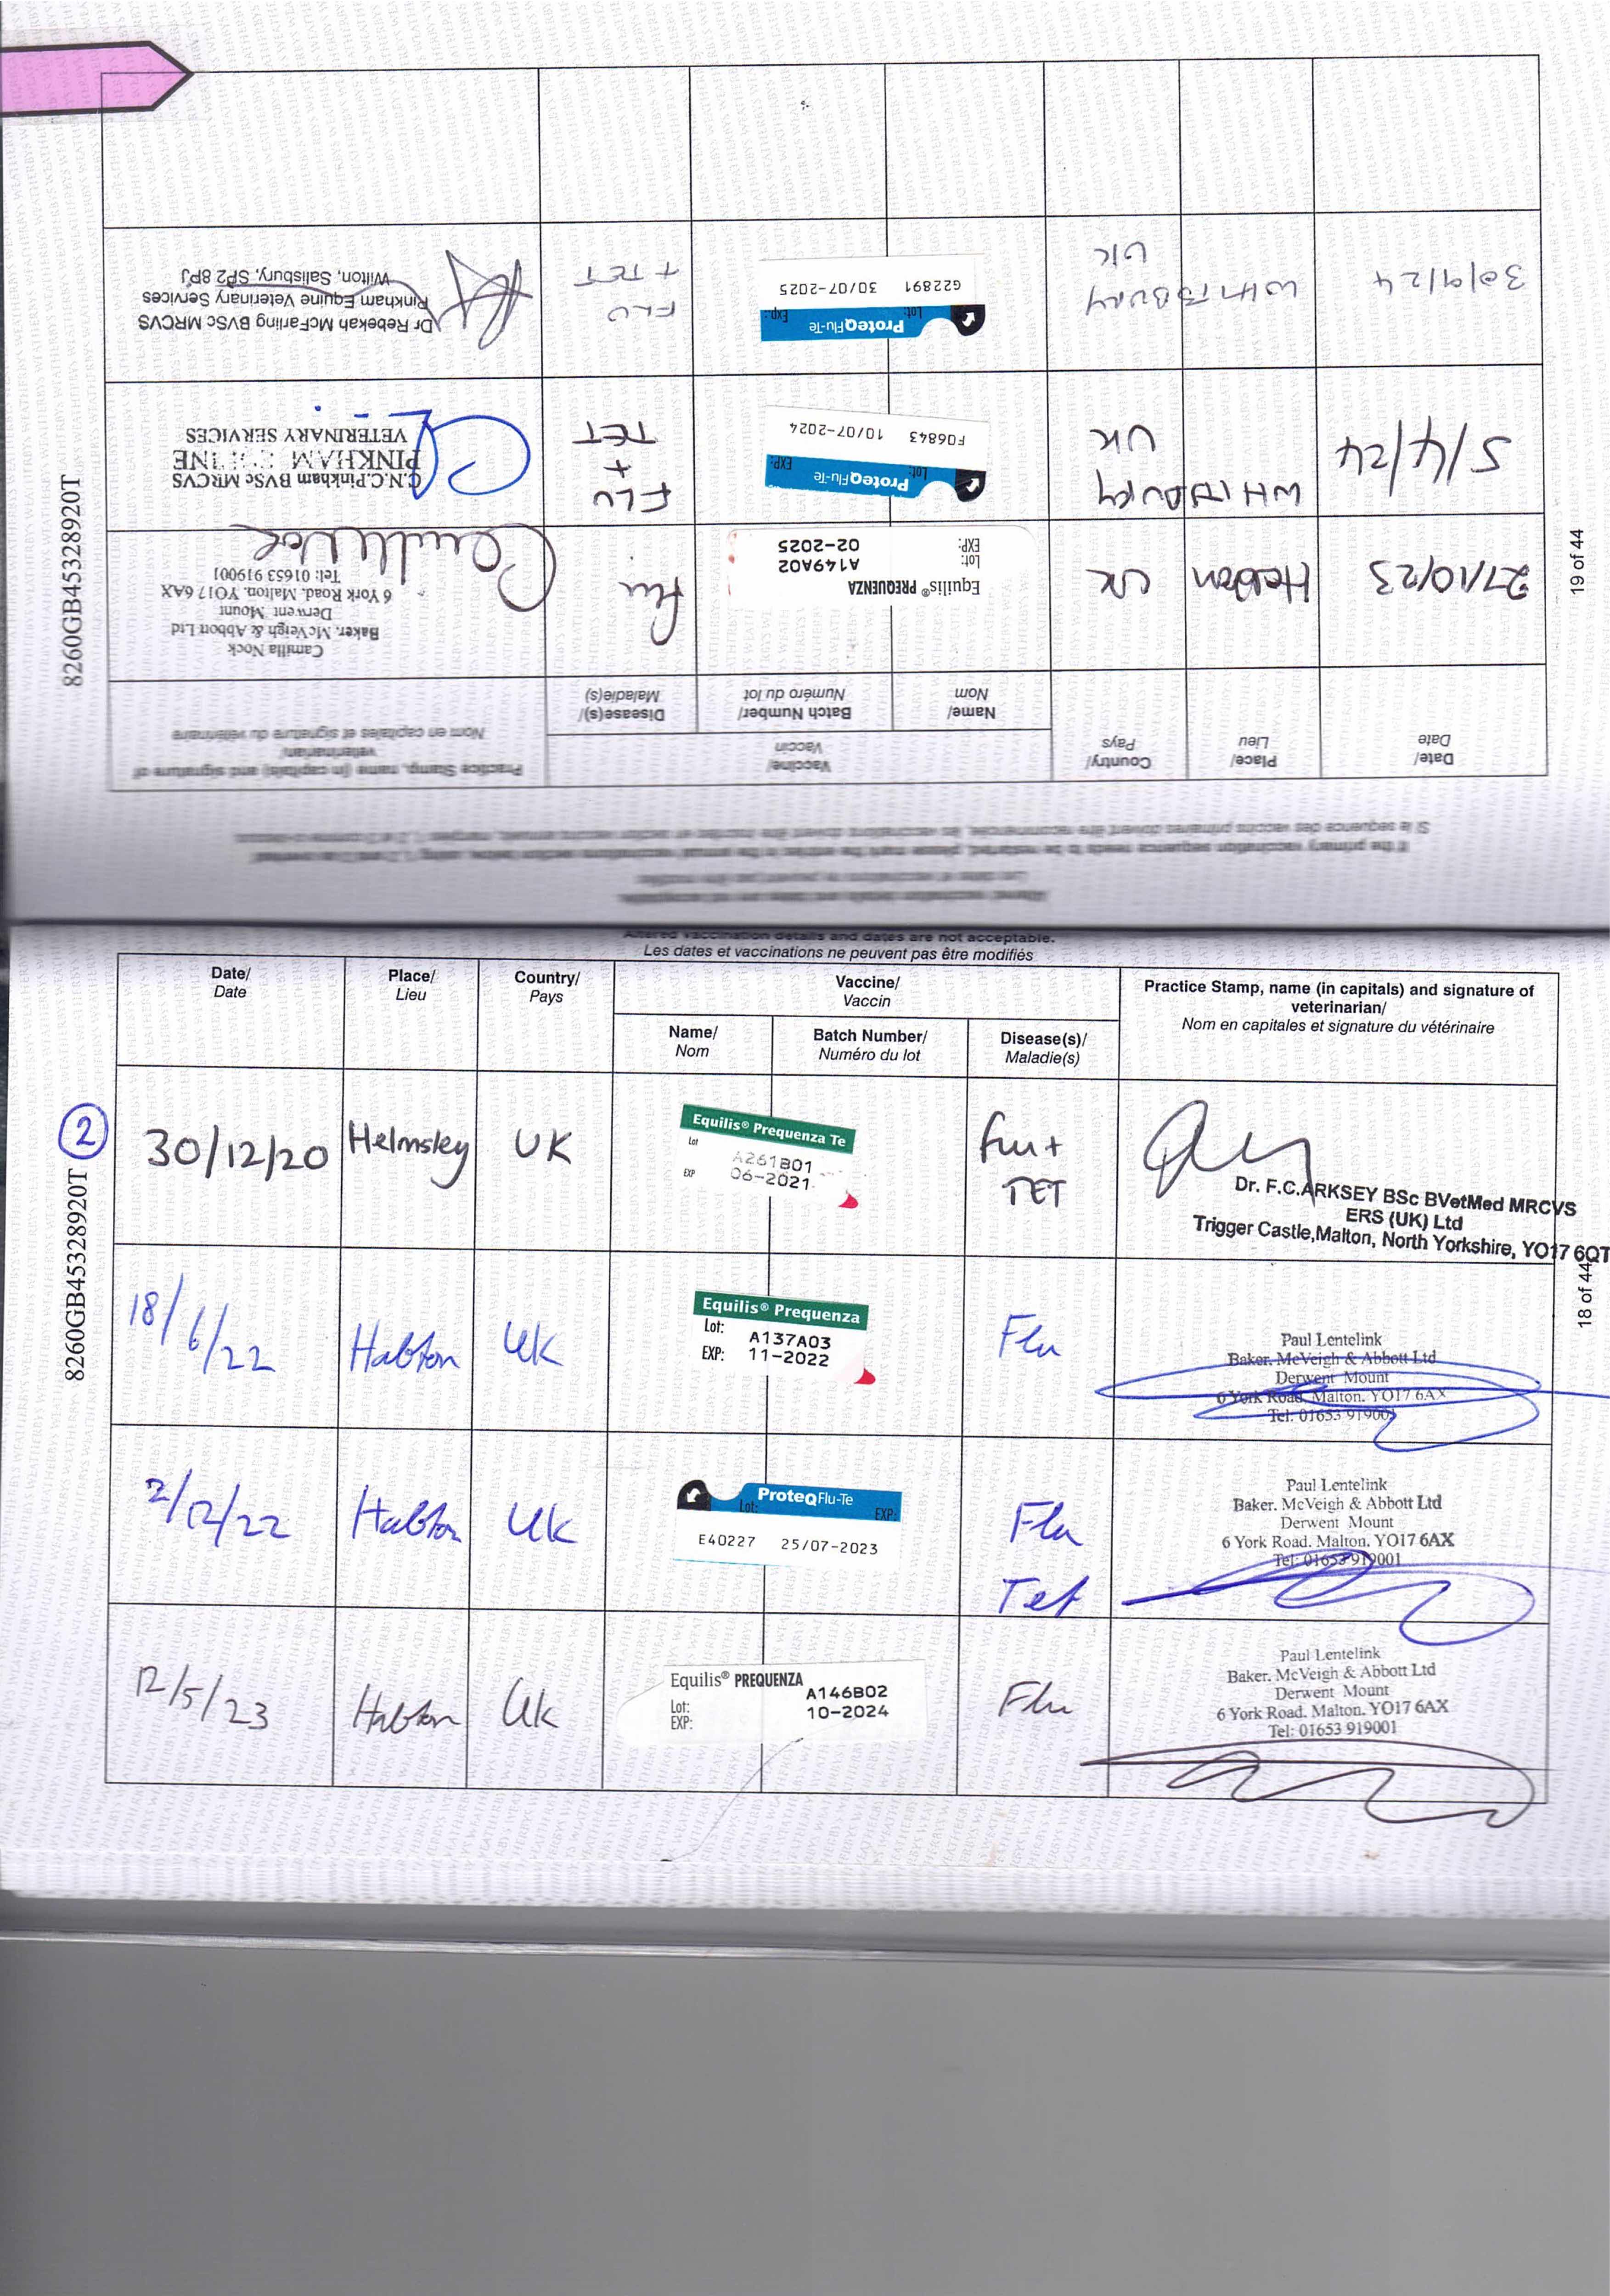 Altered vaccination details and dates are not acceptable.
Les dates et vaccinations ne peuvent pas être modifiés
Date/
Date
Place/
Lieu
Country/
Pays
Vaccine/
Vaccin
Name/
Nom
Batch Number/
Numéro du lot
Disease(s)/
Maladie(s)
Practice Stamp, name (in capitals) and signature of
veterinarian/
Nom en capitales et signature du vétérinaire
2
8260GB45328920T
18 of 44
30/12/20
Helmsley
UK
Equilis® Prequenza Te
Lot
A261B01
EXP
06-2021
Flu+
TET
Dr. F.C.ARKSEY BSc BVetMed MRCVS
ERS (UK) Ltd
Trigger Castle,Malton, North Yorkshire, YO17 6QT
18/6/22
Habton
UK
Equilis® Prequenza
Lot: A137A03
EXP: 11-2022
Flu
Paul Lentelink
Baker. McVeigh & Abbott Ltd
Derwent Mount
6 York Road. Malton. YO17 6AX
Tel: 01653 919001
2/12/22
Habton
UK
ProteqFlu-Te
Lot: EXP:
E40227 25/07-2023
Flu
Tet
Paul Lentelink
Baker. McVeigh & Abbott Ltd
Derwent Mount
6 York Road. Malton. YO17 6AX
Tel: 01653 919001
12/5/23
Habton
UK
Equilis® PREQUENZA
Lot: A146B02
EXP: 10-2024
Flu
Paul Lentelink
Baker. McVeigh & Abbott Ltd
Derwent Mount
6 York Road. Malton. YO17 6AX
Tel: 01653 919001
Altered vaccination details and dates are not acceptable.
Les dates et vaccinations ne peuvent pas être modifiés
If the primary vaccination sequence needs to be restarted, please mark the entries in the annual vaccinations section below, using 1, 2 and 3 as
Si la séquence des vaccins primaires doivent être recommencés, les vaccinations doivent être inscrites en section vaccins annuels, marqués 1, 2 et 3 comme ci-dessus
Date/
Date
Place/
Lieu
Country/
Pays
Vaccine/
Vaccin
Name/
Nom
Batch Number/
Numéro du lot
Disease(s)/
Maladie(s)
Practice Stamp, name (in capitals) and signature of
veterinarian/
Nom en capitales et signature du vétérinaire
8260GB45328920T
19 of 44
27/10/23
Habton
UK
Equilis® PREQUENZA
Lot: A149A02
EXP: 02-2025
Flu
Camilla Nock
Baker. McVeigh & Abbott Ltd
Derwent Mount
6 York Road. Malton. YO17 6AX
Tel: 01653 919001
5/4/24
WHITSBURY
UK
ProteqFlu-Te
Lot: EXP:
F06843 10/07-2024
FLU
+
TET
C.N.C.Pinkham BVSc MRCVS
PINKHAM EQUINE
VETERINARY SERVICES
30/9/24
WHITSBURY
UK
ProteqFlu-Te
Lot: EXP:
G22891 30/07-2025
FLU
+ TET
Dr Rebekah McFarling BVSc MRCVS
Pinkham Equine Veterinary Services
Wilton, Salisbury, SP2 8PJ